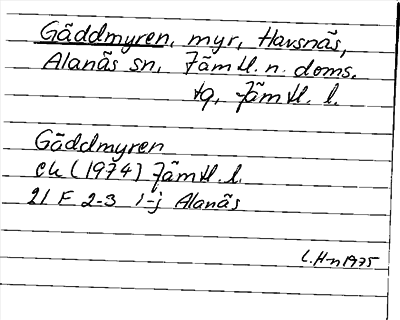 Gäddmyren, myr, Havsnäs,
Alanäs sn, Jämtl. n. doms.
tg, Jämtl. l.
Gäddmyren
ek (1974) Jämtl. l.
21 F 2-3 i-j Alanäs
C.H-n 1975